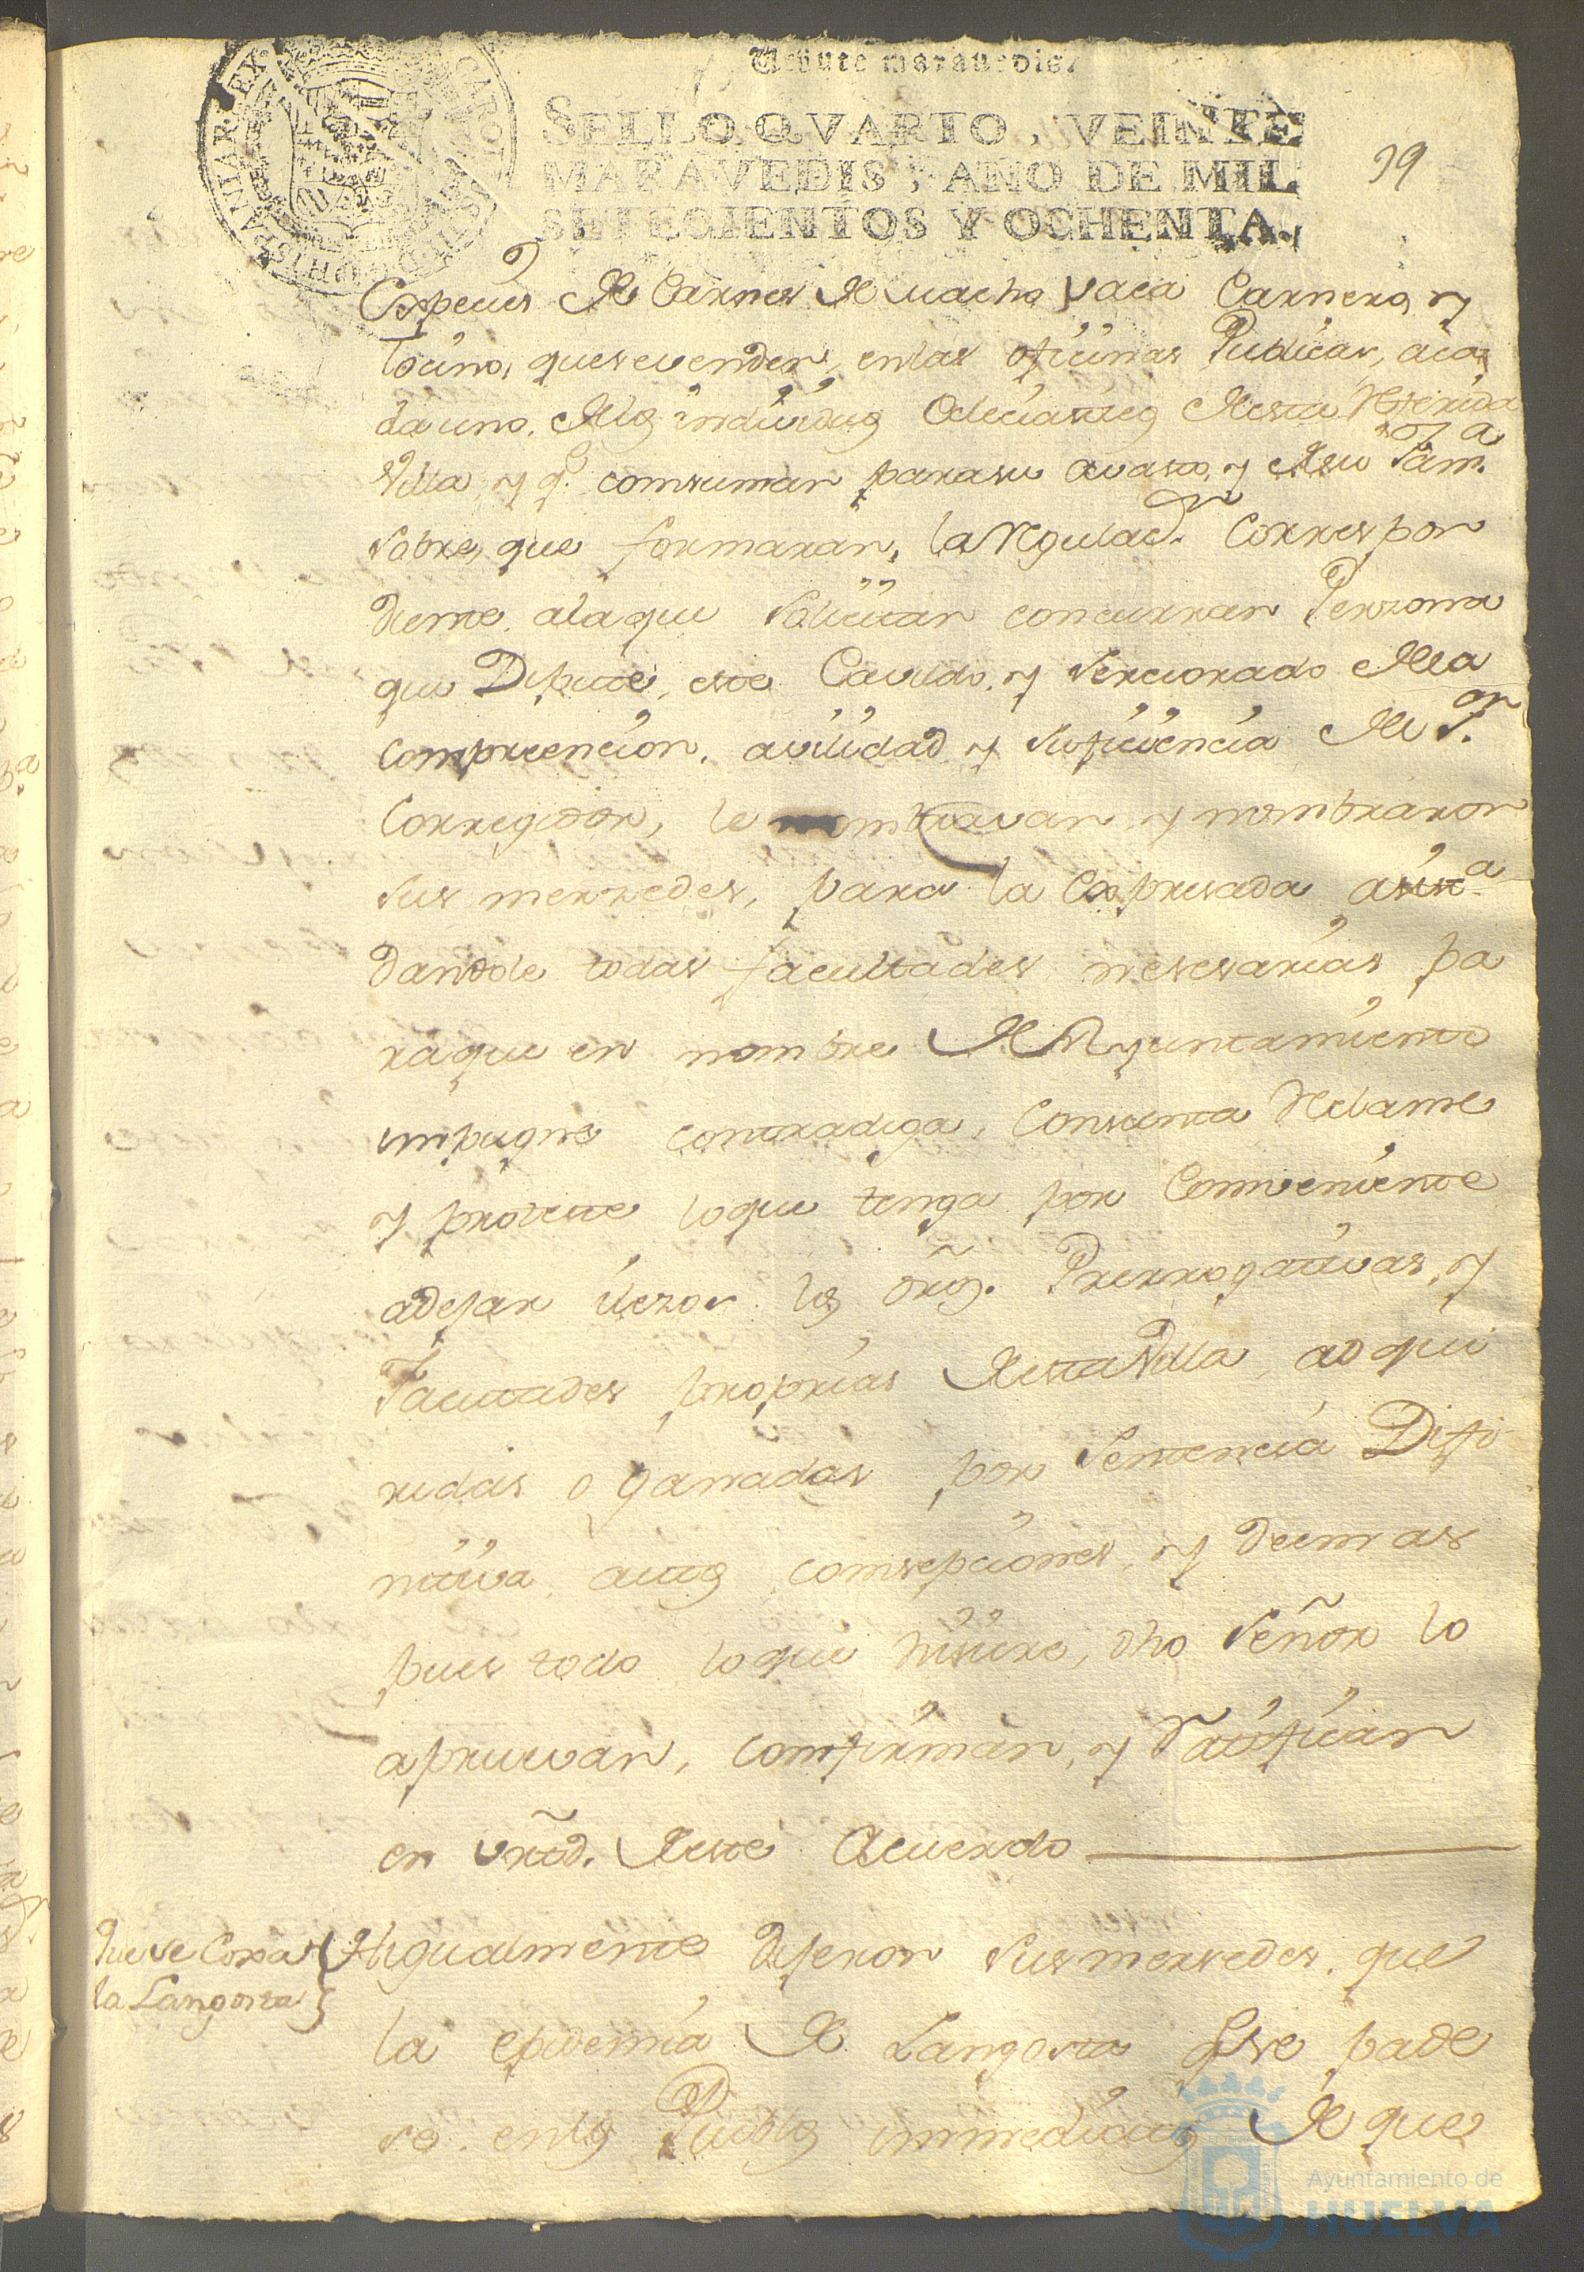 Veinte maravedis.
SELLO QVARTO, VEINTE
MARAVEDIS, AÑO DE MIL
SETECIENTOS Y OCHENTA.
39
Expecies de Carnes de macho vaca Carnero, y
tocino, quesevenden, enlas oficinas Publicas, aca
dauno, delos individuos Ecleciasticos desta referida
Villa, y q.e comsuman parasu avasto, y desu fam.a
sobre, que formaran, la regulac.on Correspon
diente, alaque solicitan concurran Perzona
que Dipute, este Cavildo, y serciorado dela
compreencion, avilidad, y suficiencia del S.or
Corregidor, le nombravan, y nombraron
sus merzedes, para la Expresada asist.a
dandole todas facultades nesesarias pa
raque en nombre del Ayuntamiento
impugne contradiga, Consienta reclame
y proteste loque tenga por Comveniente
adejar ilezos los dros. Prerrogativas, y
Facultades proprias destaVilla, adqui
ridas o ganadas por Sentencia Difi
nitiva, autos, comsepciones, y demas
pues todo loque hisiere, dho Señor lo
apruevan, comfirman, y ratifican
en virtd. deste Acuerdo
la Langosta
Higualmente dijeron sus mersedes, que
la epidemia de Langosta qe se pade
se, enlos Pueblos immediatos de que
Ayuntamiento de
HUELVA